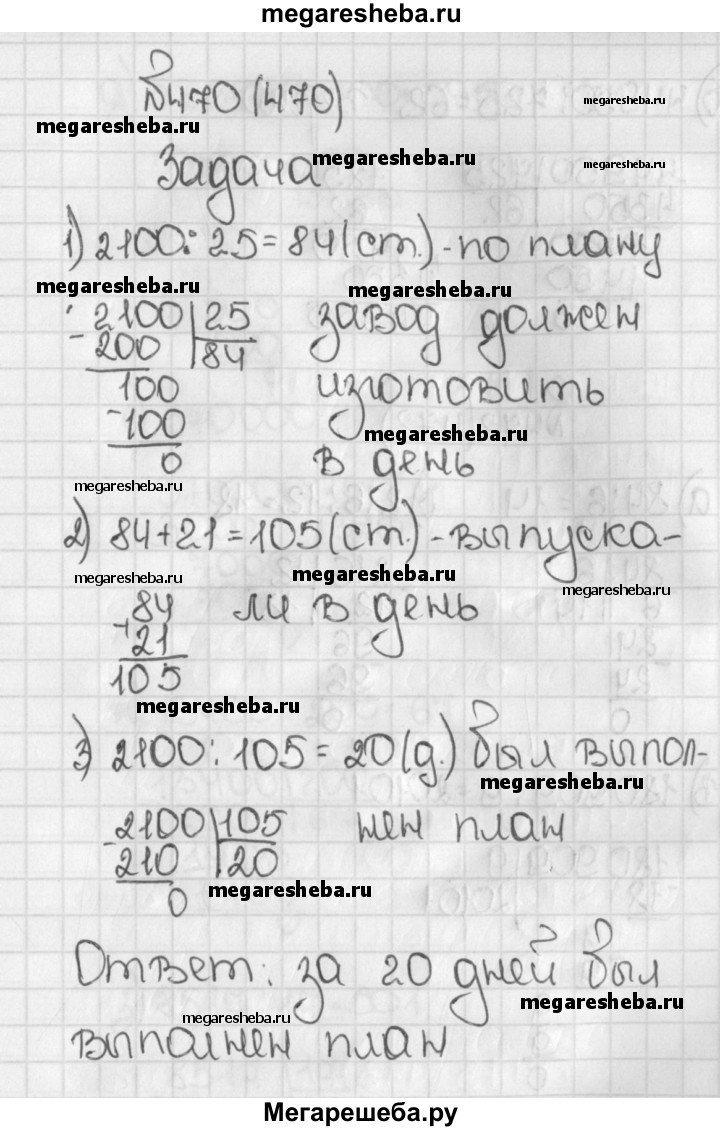 megaresheba.ru
№470 (470)
megaresheba.ru
megaresheba.ru
Задача
megaresheba.ru
megaresheba.ru
1) 2100 : 25 = 84 (ст.) - по плану
megaresheba.ru
megaresheba.ru
2100 | 25 завод должен
- 200 | 84
100 изготовить
- 100
megaresheba.ru
0 в день
megaresheba.ru
2) 84 + 21 = 105 (ст.) - выпуска-
megaresheba.ru
megaresheba.ru
megaresheba.ru
84 ли в день
+ 21
105
megaresheba.ru
3) 2100 : 105 = 20 (д.) был выпол-
megaresheba.ru
2100 | 105 нен план
- 210 | 20
megaresheba.ru
0
Ответ: за 20 дней был
megaresheba.ru
megaresheba.ru
выполнен план
Мегарешеба.ру